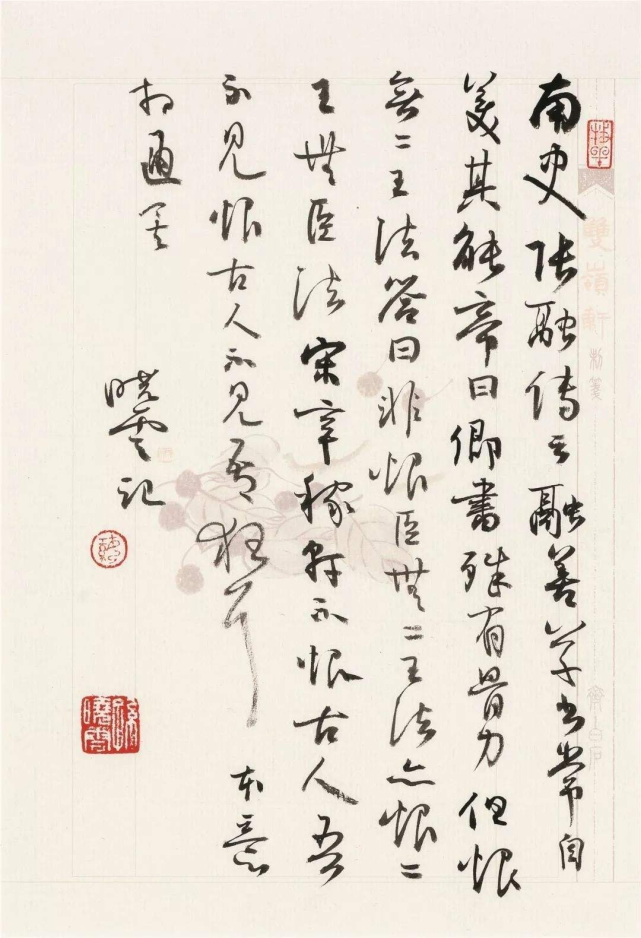 南史張融傳云融善草书常自
美其能帝曰卿書殊有骨力但恨
無二王法答曰非恨臣無二王法亦恨二
王無臣法宋辛稼軒不恨古人吾
不見恨古人不見吾狂耳本意
相通矣
曉雲記
孫曉雲
雙嶺軒
齊白石